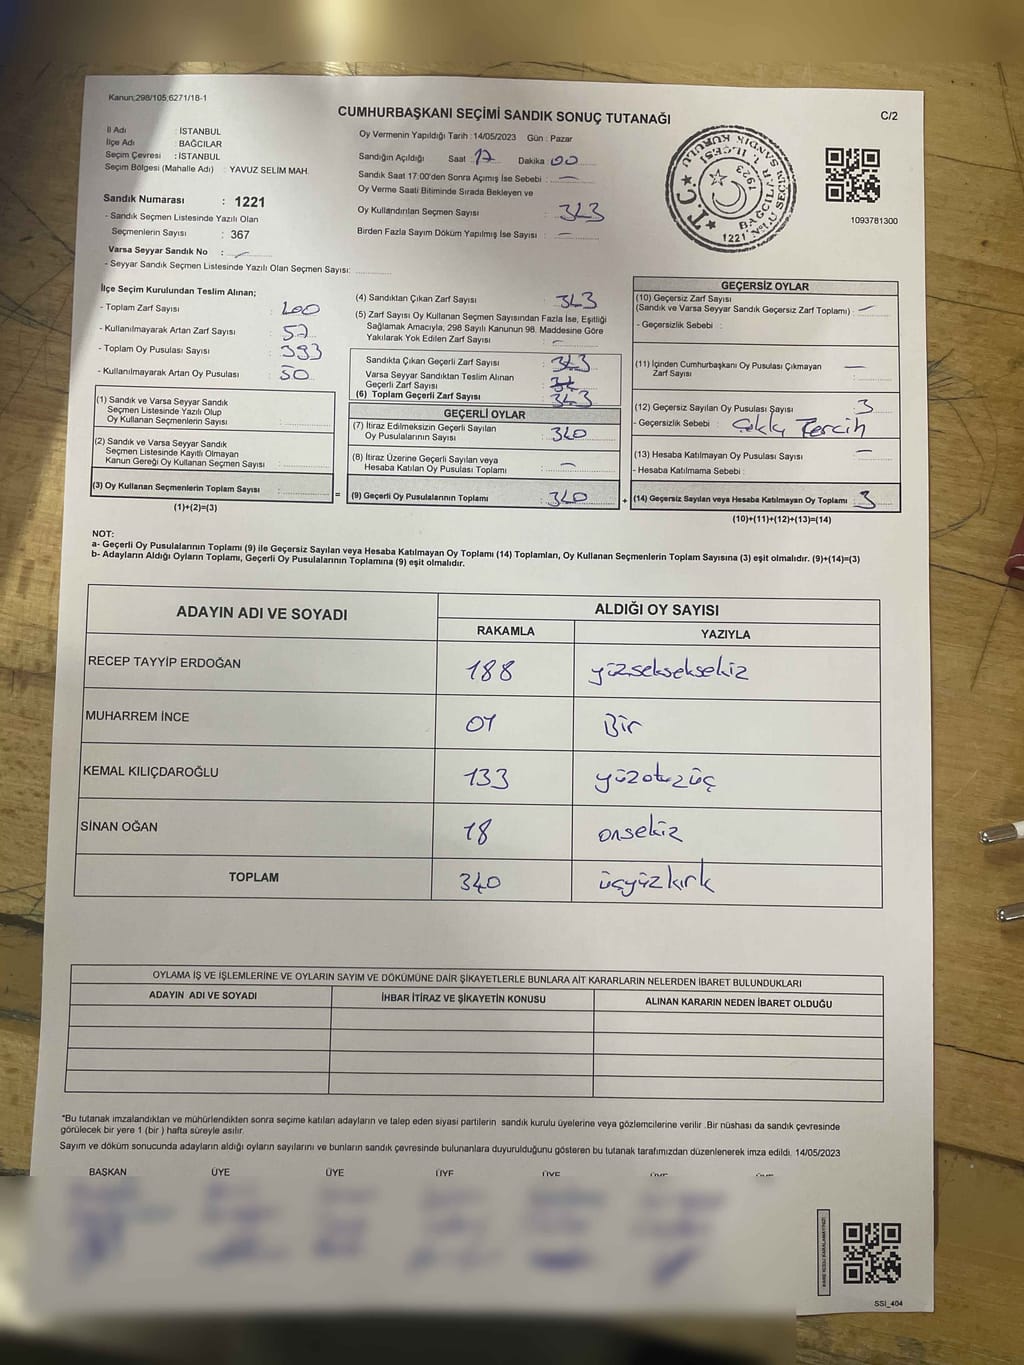 Kanun;298/105,6271/18-1
C/2
CUMHURBAŞKANI SEÇİMİ SANDIK SONUÇ TUTANAĞI
İl Adı : İSTANBUL
İlçe Adı : BAĞCILAR
Seçim Çevresi : İSTANBUL
Seçim Bölgesi (Mahalle Adı) : YAVUZ SELİM MAH.
Sandık Numarası : 1221
- Sandık Seçmen Listesinde Yazılı Olan
Seçmenlerin Sayısı : 367
Varsa Seyyar Sandık No :
- Seyyar Sandık Seçmen Listesinde Yazılı Olan Seçmen Sayısı:
Oy Vermenin Yapıldığı Tarih : 14/05/2023 Gün : Pazar
Sandığın Açıldığı Saat 17 Dakika 00
Sandık Saat 17:00'den Sonra Açımış İse Sebebi : —
Oy Verme Saati Bitiminde Sırada Bekleyen ve
Oy Kullandırılan Seçmen Sayısı : 343
Birden Fazla Sayım Döküm Yapılmış İse Sayısı : —
T.C.
BAĞCILAR
1923
1221 NOLU SEÇİM SANDIK KURULU
1093781300
İlçe Seçim Kurulundan Teslim Alınan;
- Toplam Zarf Sayısı : 400
- Kullanılmayarak Artan Zarf Sayısı : 57
- Toplam Oy Pusulası Sayısı : 393
- Kullanılmayarak Artan Oy Pusulası : 50
(1) Sandık ve Varsa Seyyar Sandık
Seçmen Listesinde Yazılı Olup
Oy Kullanan Seçmenlerin Sayısı :
(2) Sandık ve Varsa Seyyar Sandık
Seçmen Listesinde Kayıtlı Olmayan
Kanun Gereği Oy Kullanan Seçmen Sayısı :
(3) Oy Kullanan Seçmenlerin Toplam Sayısı :
(1)+(2)=(3)
=
(4) Sandıktan Çıkan Zarf Sayısı : 343
(5) Zarf Sayısı Oy Kullanan Seçmen Sayısından Fazla İse, Eşitliği
Sağlamak Amacıyla, 298 Sayılı Kanunun 98. Maddesine Göre
Yakılarak Yok Edilen Zarf Sayısı : —
Sandıkta Çıkan Geçerli Zarf Sayısı : 343
Varsa Seyyar Sandıktan Teslim Alınan
Geçerli Zarf Sayısı :
(6) Toplam Geçerli Zarf Sayısı : 343
GEÇERLİ OYLAR
(7) İtiraz Edilmeksizin Geçerli Sayılan
Oy Pusulalarının Sayısı : 340
(8) İtiraz Üzerine Geçerli Sayılan veya
Hesaba Katılan Oy Pusulası Toplamı : —
(9) Geçerli Oy Pusulalarının Toplamı : 340
+
GEÇERSİZ OYLAR
(10) Geçersiz Zarf Sayısı
(Sandık ve Varsa Seyyar Sandık Geçersiz Zarf Toplamı) : —
- Geçersizlik Sebebi :
(11) İçinden Cumhurbaşkanı Oy Pusulası Çıkmayan —
Zarf Sayısı
(12) Geçersiz Sayılan Oy Pusulası Sayısı : 3
- Geçersizlik Sebebi : Çoklu Tercih
(13) Hesaba Katılmayan Oy Pusulası Sayısı : —
- Hesaba Katılmama Sebebi :
(14) Geçersiz Sayılan veya Hesaba Katılmayan Oy Toplamı : 3
(10)+(11)+(12)+(13)=(14)
NOT:
a- Geçerli Oy Pusulalarının Toplamı (9) ile Geçersiz Sayılan veya Hesaba Katılmayan Oy Toplamı (14) Toplamları, Oy Kullanan Seçmenlerin Toplam Sayısına (3) eşit olmalıdır. (9)+(14)=(3)
b- Adayların Aldığı Oyların Toplamı, Geçerli Oy Pusulalarının Toplamına (9) eşit olmalıdır.
ADAYIN ADI VE SOYADI ALDIĞI OY SAYISI
RAKAMLA YAZIYLA
RECEP TAYYİP ERDOĞAN 188 yüzsekseksekiz
MUHARREM İNCE 01 Bir
KEMAL KILIÇDAROĞLU 133 yüzotuzüç
SİNAN OĞAN 18 onsekiz
TOPLAM 340 üçyüzkırk
OYLAMA İŞ VE İŞLEMLERİNE VE OYLARIN SAYIM VE DÖKÜMÜNE DAİR ŞİKAYETLERLE BUNLARA AİT KARARLARIN NELERDEN İBARET BULUNDUKLARI
ADAYIN ADI VE SOYADI İHBAR İTİRAZ VE ŞİKAYETİN KONUSU ALINAN KARARIN NEDEN İBARET OLDUĞU
*Bu tutanak imzalandıktan ve mühürlendikten sonra seçime katılan adayların ve talep eden siyasi partilerin sandık kurulu üyelerine veya gözlemcilerine verilir .Bir nüshası da sandık çevresinde
görülecek bir yere 1 (bir ) hafta süreyle asılır.
Sayım ve döküm sonucunda adayların aldığı oyların sayılarını ve bunların sandık çevresinde bulunanlara duyurulduğunu gösteren bu tutanak tarafımızdan düzenlenerek imza edildi. 14/05/2023
BAŞKAN ÜYE ÜYE ÜYE ÜYE
SSİ_404